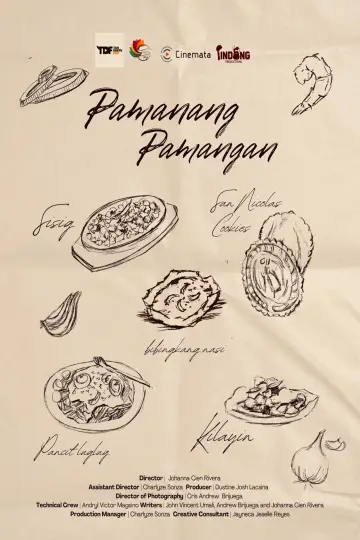 TDF
Cinemata
PINDONG
PRODUCTIONS
Pamanang
Pamangan
Sisig
San Nicolas
Cookies
bibingkang nasi
Pancit luglug
Kilayin
Director | Johanna Cien Rivera
Assistant Director | Charlyze Sonza Producer | Dustine Josh Lacaina
Director of Photography | Cris Andrew Brijuega
Technical Crew | Andryl Victor Magaino Writers | John Vincent Umali, Andrew Brijuega and Johanna Cien Rivera
Production Manager | Charlyze Sonza Creative Consultant | Jayneca Jeselle Reyes